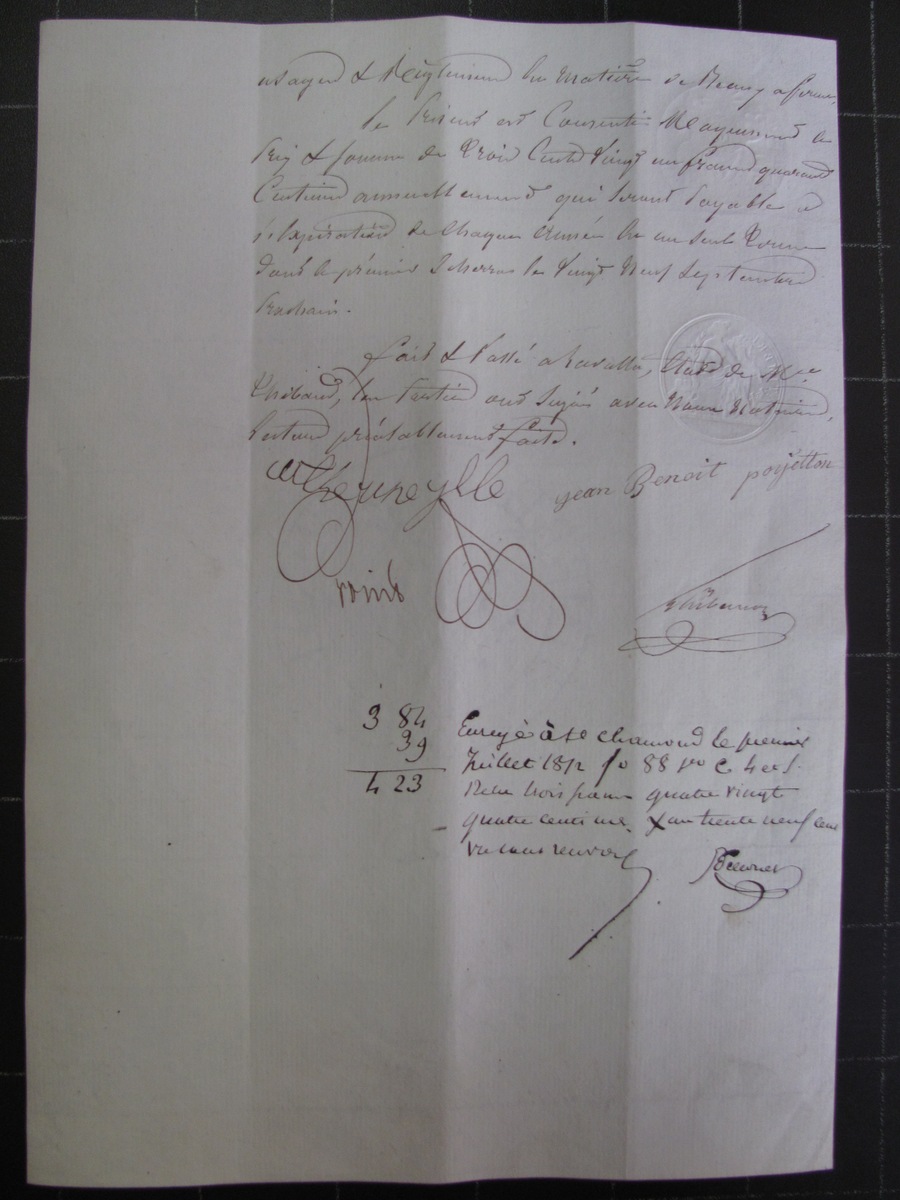 usages & Règlemens en matière de Beaux a ferme,
Le Present est Consenti Moyennant le
Prix & somme de Trois Cent Vingt un francs quarante
Centimes annuellement qui seront payable a
l'Expiration de Chaque Année en un seul Terme
dont le prémier Echerra le Vingt Neuf Septembre
Prochain.
fait & Passé a Lavalla, Etude de Me
Thibaud, les Parties ont Signé avec Nous Notaires,
Lecture préalablement faite.
jean Benoit
Thibaud
3 84
39
4 23
Enregé à St chamond le premier
Juillet 181 fo 88 vo C 4 et 5.
Reçu trois francs quatre vingt
quatre centimes. X an trente neuf cent